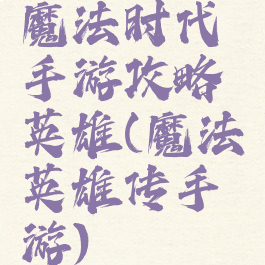 魔法时代
手游攻略
英雄(魔法
英雄传手
游)